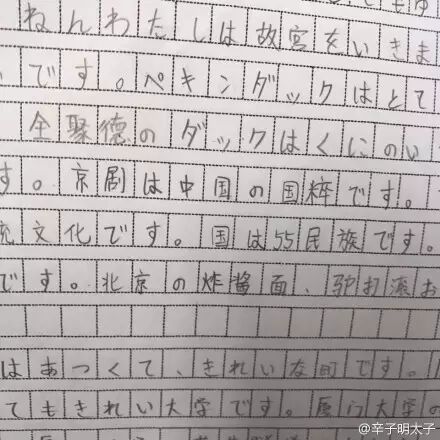 ねんわたしは故宮をいきま
です。ペキンダックはとて
全聚德のダックはくにのい
す。京剧は中国の国粹です。
文化です。国は55民族です。
です。北京の炸酱面、驴打滚お
はあつくて、きれいな町です。
てもきれい大学です。厦门大学の
@辛子明太子